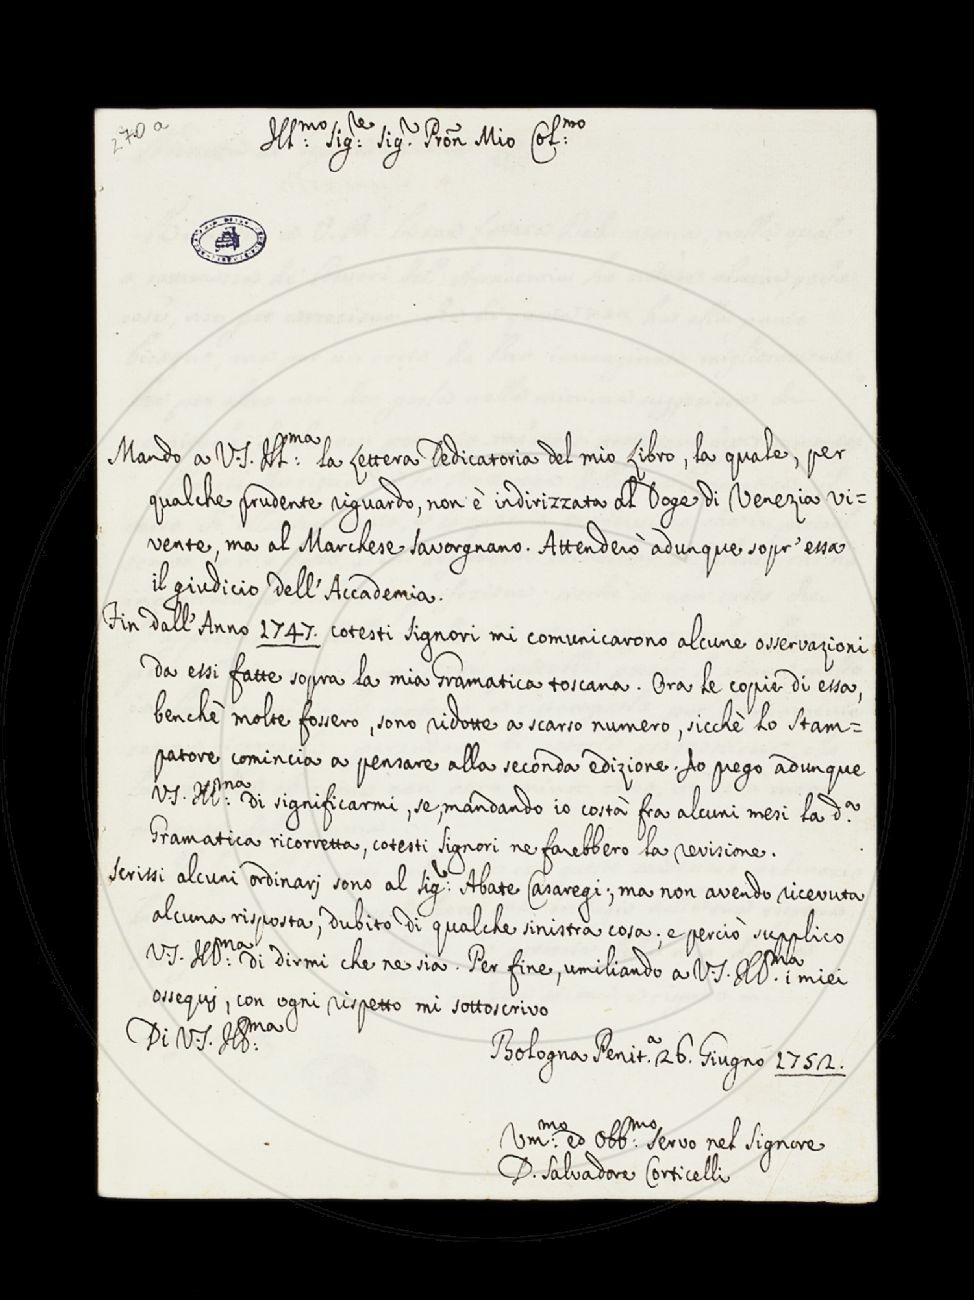 270 a
Ill:mo Sig:re Sig:r Pron Mio Col:mo
Mando a V.S. Ill:ma la Lettera Dedicatoria del mio Libro, la quale, per
qualche prudente riguardo, non è indirizzata al Doge di Venezia vi=
vente, ma al Marchese Savorgnano. Attenderò adunque sopr'essa
il giudicio dell'Accademia.
Fin dall'Anno 1747. cotesti Signori mi comunicarono alcune osservazioni
da essi fatte sopra la mia Gramatica toscana. Ora le copie di essa,
benchè molte fossero, sono ridotte a scarso numero, sicchè lo Stam=
patore comincia a pensare alla seconda edizione. Io prego adunque
V.S. Ill:ma di significarmi, se, mandando io costà fra alcuni mesi la d.a
Gramatica ricorretta, cotesti Signori ne farebbero la revisione.
Scrissi alcuni ordinarj sono al Sig:r Abate Casaregi; ma non avendo ricevuta
alcuna risposta, dubito di qualche sinistra cosa; e perciò supplico
V.S. Ill:ma di dirmi che ne sia. Per fine, umiliando a V.S. Ill:ma i miei
ossequj, con ogni rispetto mi sottoscrivo
Di V.S. Ill:ma
Bologna Penit.a 26. Giugno 1752.
Um:mo ed Obb:mo Servo nel Signore
D. Salvadore Corticelli